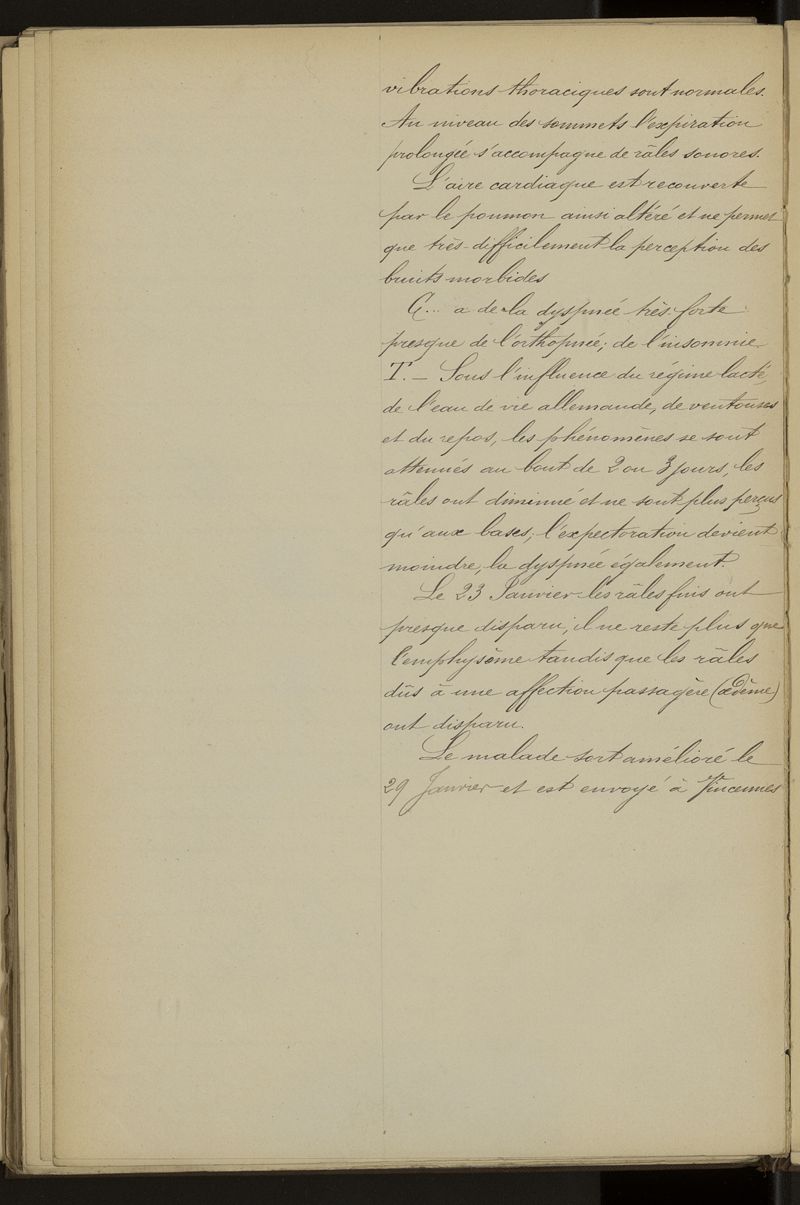 vibrations thoraciques sont normales.
Au niveau des sommets l'expiration
prolongée s'accompagne de râles sonores.
L'aire cardiaque est recouverte
par le poumon ainsi altéré et ne permet
que très difficilement la perception des
bruits morbides
G... a de la dyspnée très forte
presque de l'orthopnée; de l'insomnie
T. — Sous l'influence du régime lacté,
de l'eau de vie allemande, de ventouses
et du repos, les phénomènes se sont
attenués au bout de 2 ou 3 jours, les
râles ont diminué et ne sont plus perçus
qu'aux bases; l'expectoration devient
moindre, la dyspnée également.
Le 23 Janvier les râles fins ont
presque disparu; il ne reste plus que
l'emphysème tandis que les râles
dûs à une affection passagère (œdème)
ont disparu.
Le malade sort amélioré le
29 Janvier et est envoyé à Vincennes